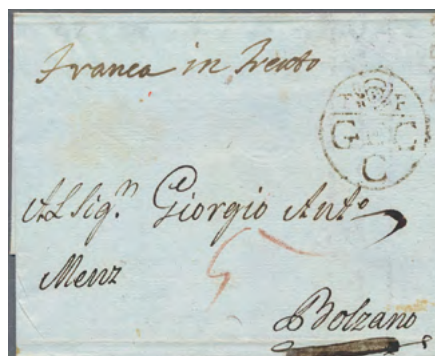 Franca in Trento
G C
C
Al Sig.ⁿ Giorgio Ant.º
Menz
5
Bolzano